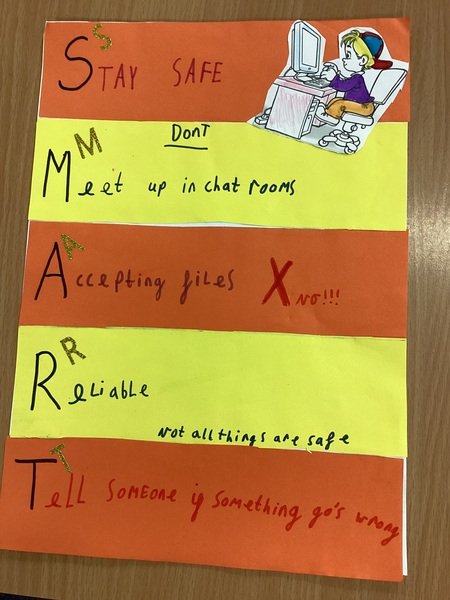 S
STAY SAFE
M
DONT
Meet up in chat rooms
A
Accepting files X NO!!!
R
ReLiabLe
Not all things are safe
T
TeLL SOMEONE if something go's wrong